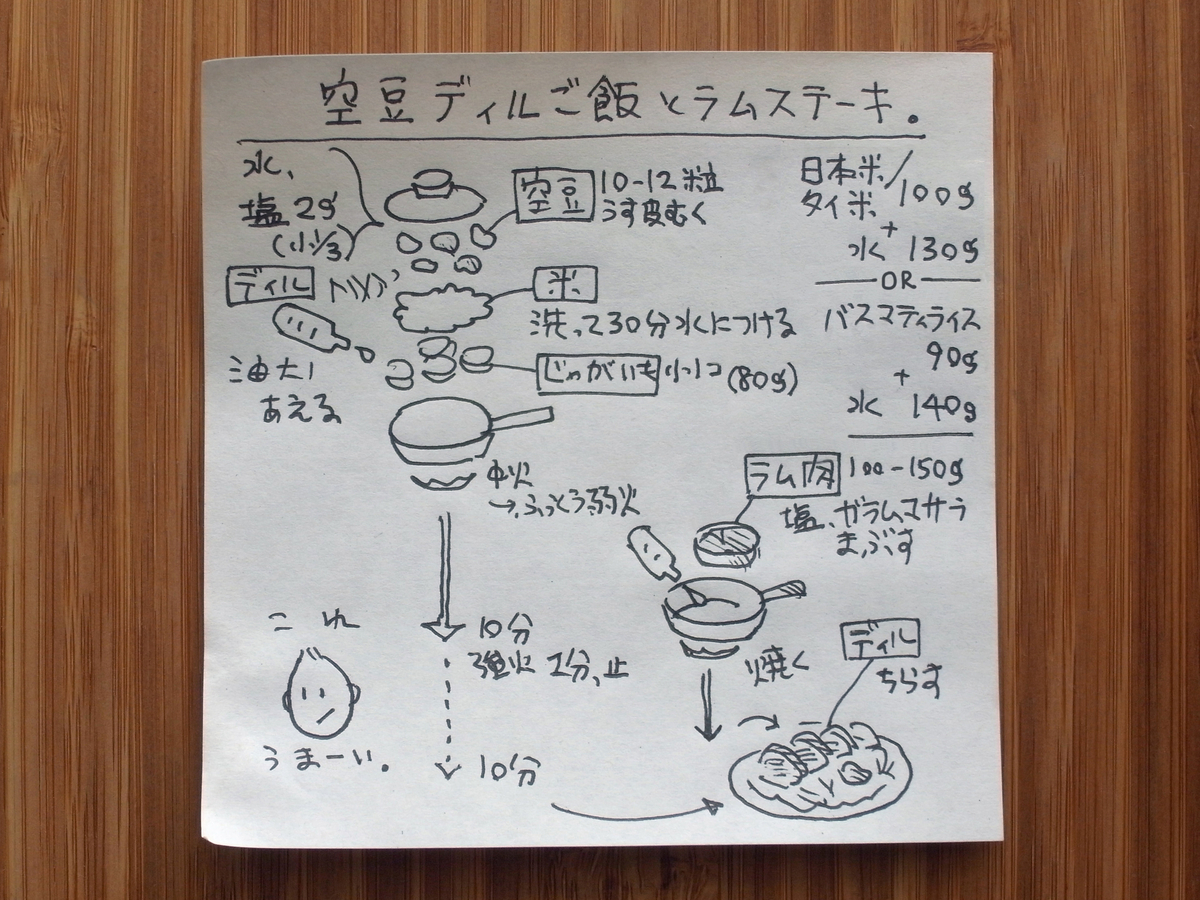 空豆ディルご飯とラムステーキ.
水、
塩2g
(小1/3)
空豆 10-12粒
うす皮むく
日本米/
タイ米 100g
+
水 130g
OR
バスマティライス
90g
+
水 140g
ディル
米
洗って30分水につける
油大1
あえる
じゃがいも 小1コ (80g)
中火
→ふっとう弱火
ラム肉 100-150g
塩、ガラムマサラ
まぶす
10分
強火 1分、止
10分
焼く
ディル
ちらす
これ
うまーい.